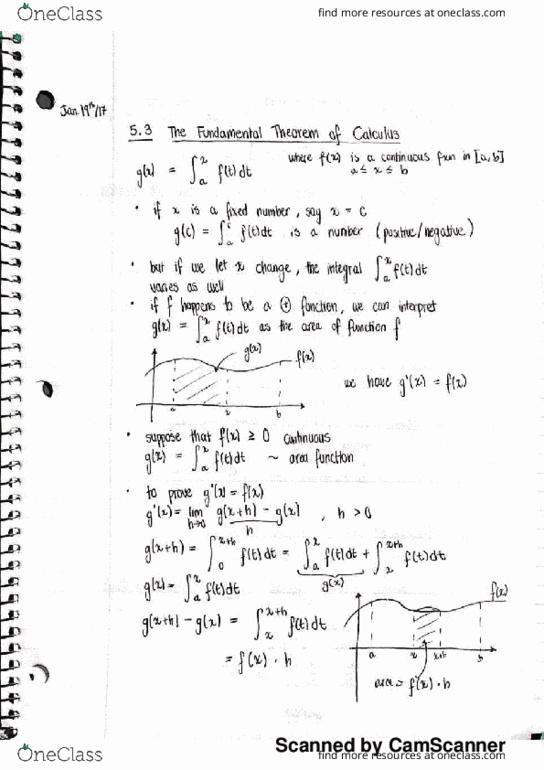 OneClass find more resources at oneclass.com
Jan 19th/17
5.3 The Fundamental Theorem of Calculus
g(x) = ∫ₐˣ f(t)dt where f(x) is a continuous fxn in [a,b]
a ≤ x ≤ b
• if x is a fixed number, say x = c
g(c) = ∫ₐᶜ f(t)dt is a number (positive/negative)
• but if we let x change, the integral ∫ₐˣ f(t)dt
varies as well
• if f happens to be a ⊕ function, we can interpret
g(x) = ∫ₐˣ f(t)dt as the area of function f
g(x) f(x)
we have g'(x) = f(x)
a x b
• suppose that f(x) ≥ 0 continuous
g(x) = ∫ₐˣ f(t)dt ~ area function
• to prove g'(x) = f(x)
g'(x) = lim h→0 g(x+h) - g(x) / h , h > 0
g(x+h) = ∫₀ˣ⁺ʰ f(t)dt = ∫ₐˣ f(t)dt + ∫ₓˣ⁺ʰ f(t)dt
g(x)
g(x) = ∫ₐˣ f(t)dt
f(x)
g(x+h) - g(x) = ∫ₓˣ⁺ʰ f(t)dt
= f(x) · h
a x x+h b
area = f(x) · h
Scanned by CamScanner
OneClass find more resources at oneclass.com